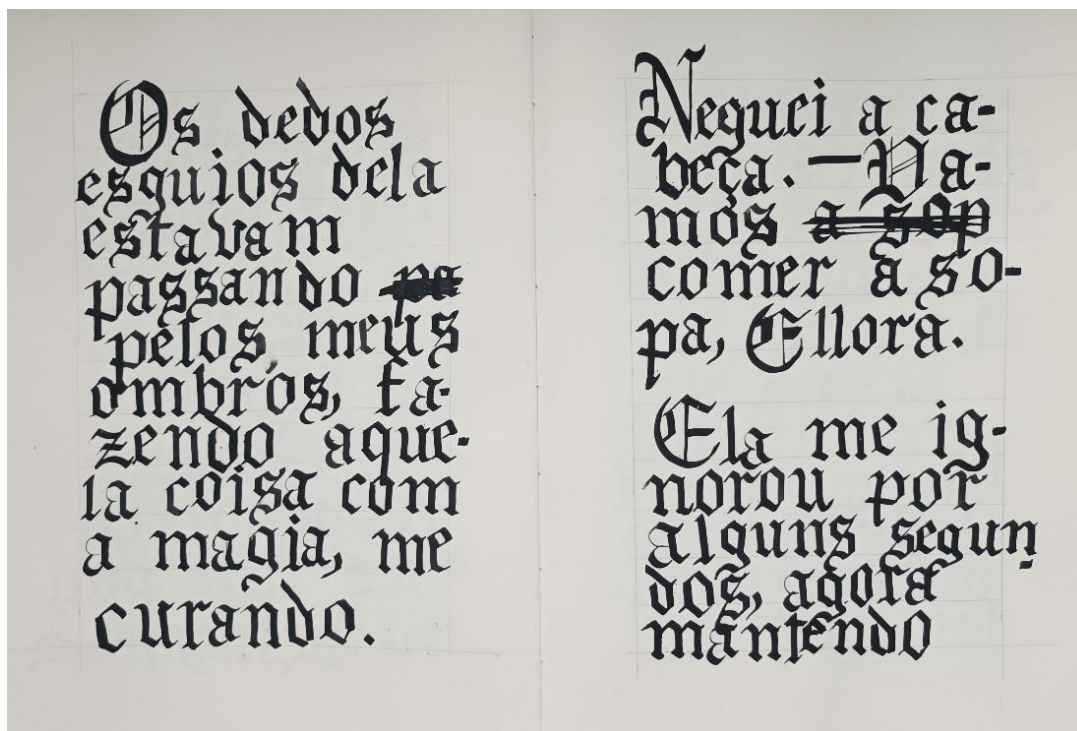 Os dedos
esguios dela
estavam
passando pa
pelos meus
ombros, fa-
zendo aque-
la coisa com
a magia, me
curando.
Neguei a ca-
beça. —Va-
mos a sop
comer a so-
pa, Ellora.
Ela me ig-
norou por
alguns segun-
dos, agora
mantendo